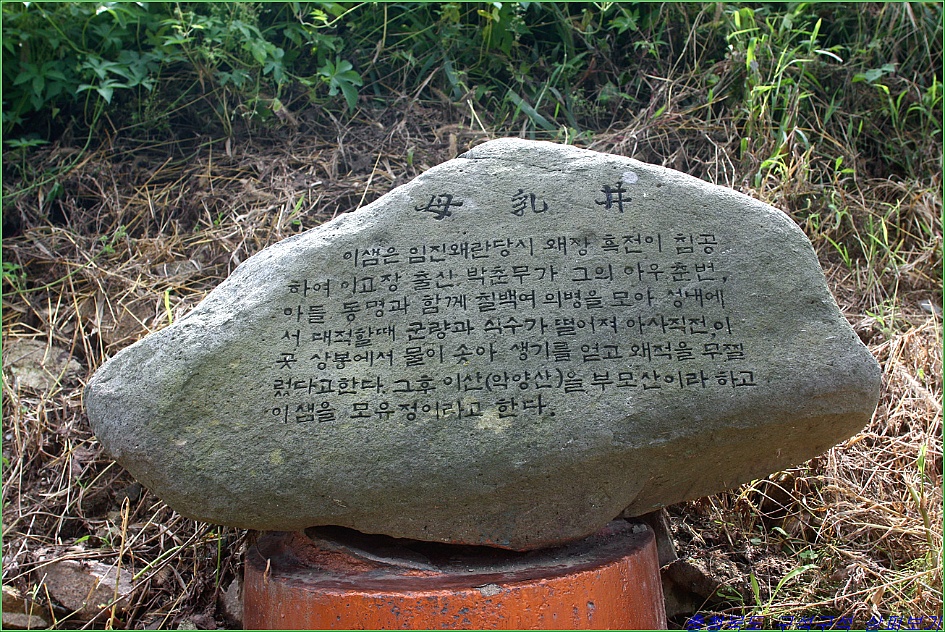 母乳井
이샘은 임진왜란당시 왜장 흑전이 침공
하여 이고장 출신, 박춘무가 그의 아우 춘번,
아들 동명과 함께 칠백여 의병을 모아 성내에
서 대적할때 군량과 식수가 떨어져 아사직전,이
곳 상봉에서 물이 솟아 생기를 얻고 왜적을 무찔
렀다고한다. 그후 이산(악양산)을 부모산이라 하고
이샘을 모유정이라고 한다.